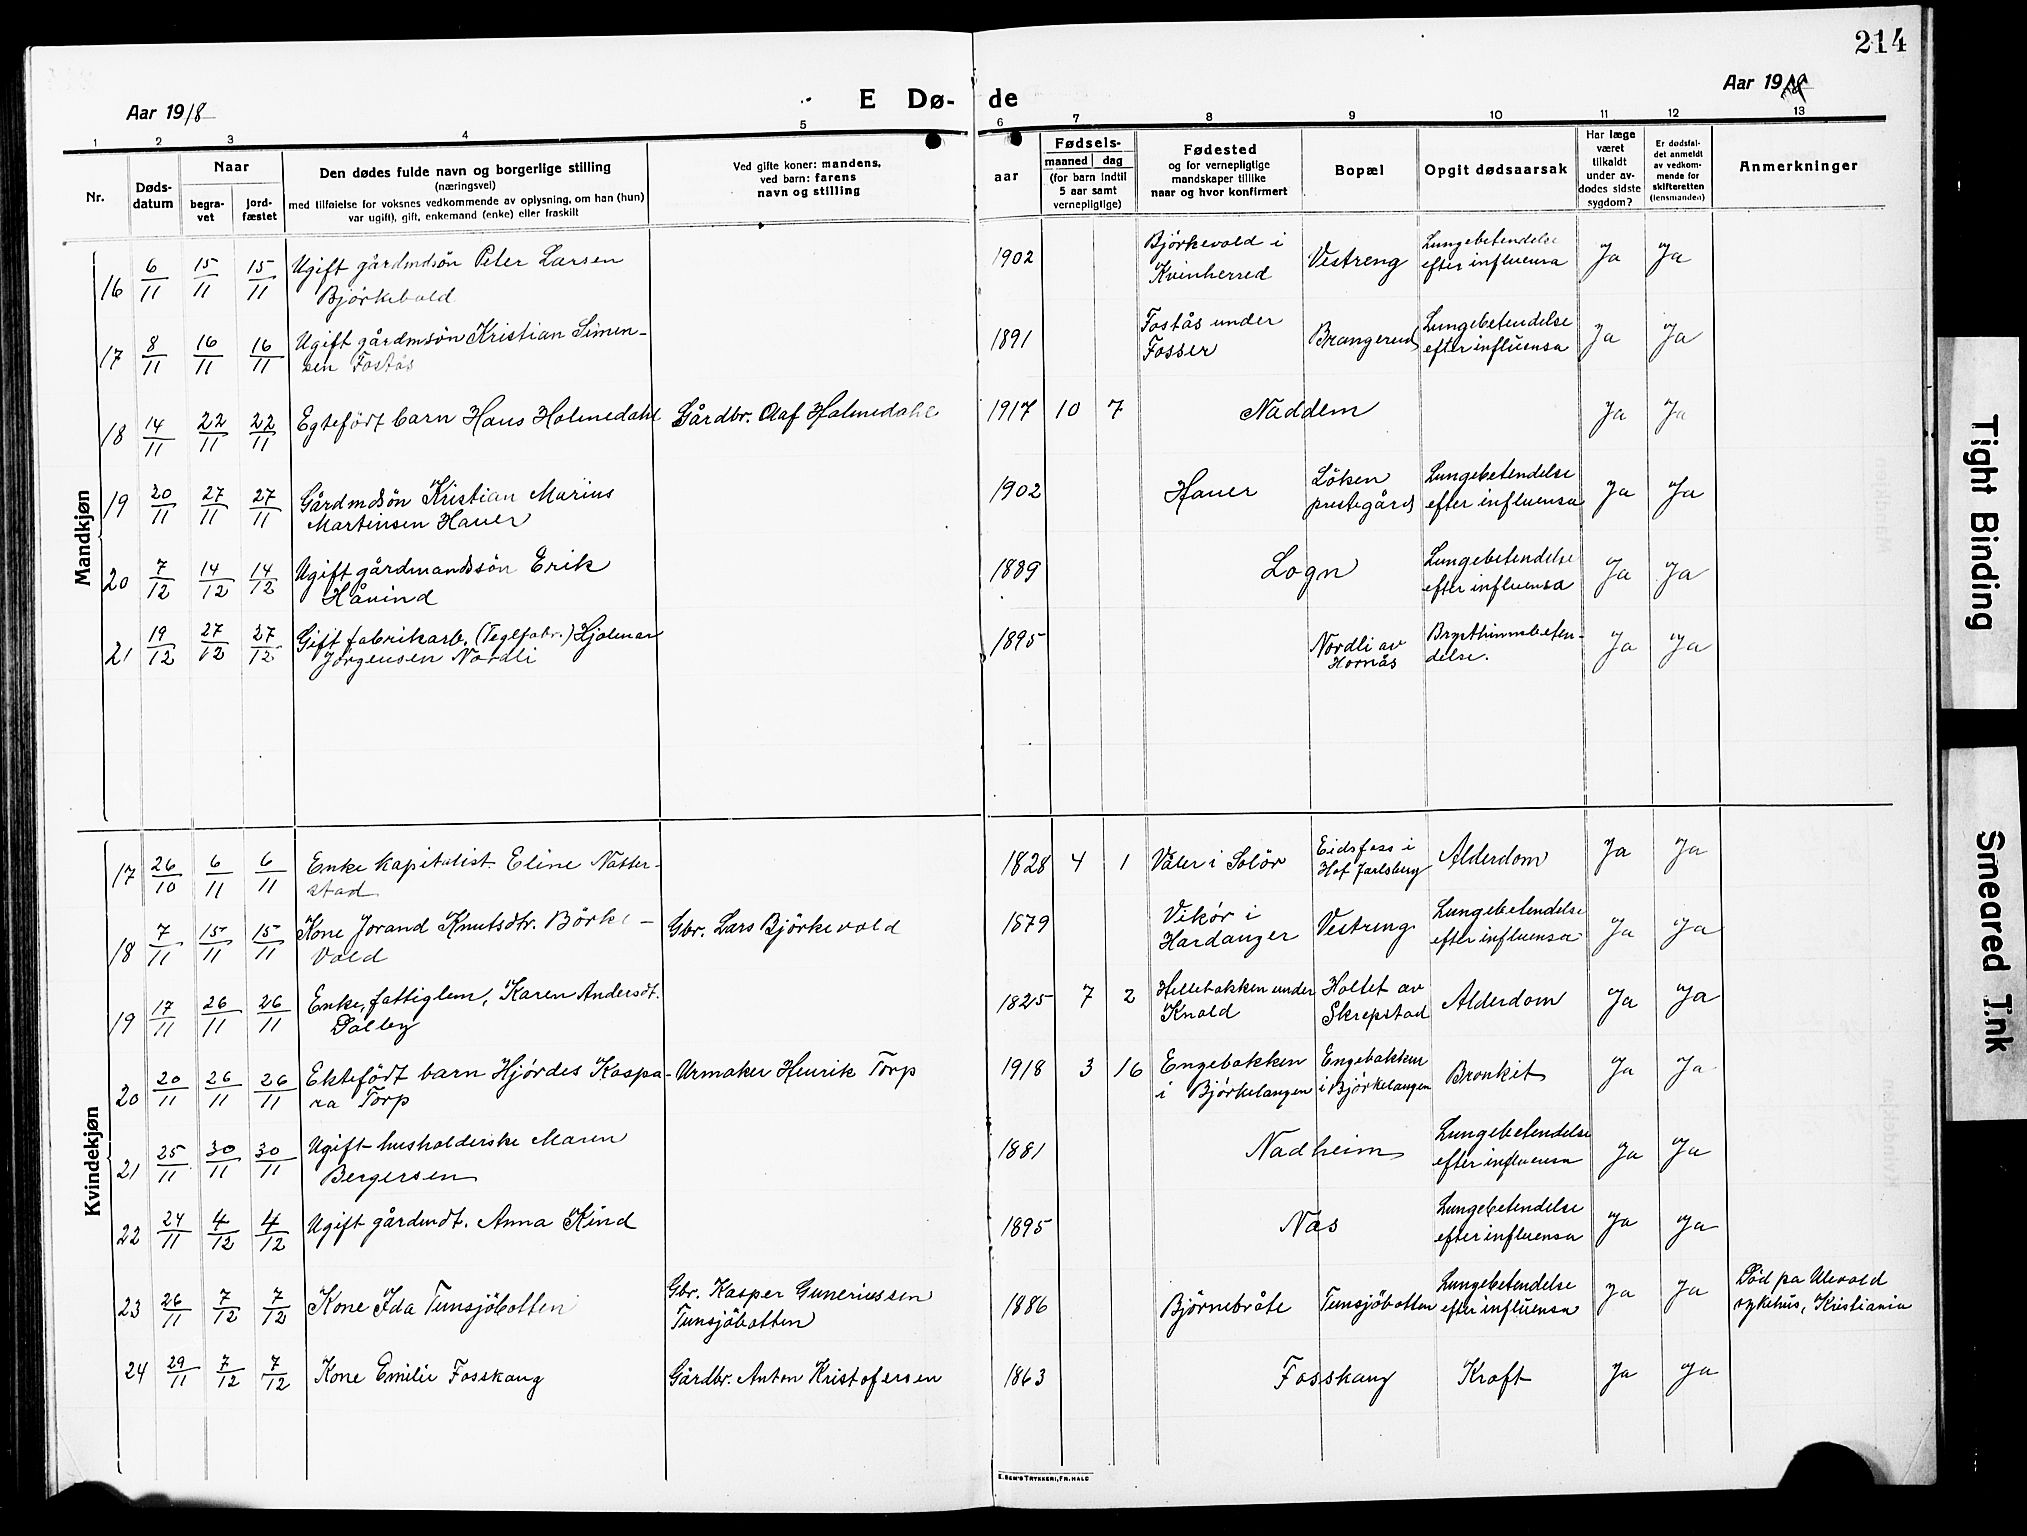 214
Aar 1918
E Dø-
de
Aar 19
1 2 3 4 5 6 7 8 9 10 11 12 13
Nr.
Døds-
datum
Naar
begra-
vet
jord-
fæstet
Den dødes fulde navn og borgerlige stilling
(næringsvei)
med tilføielse for voksnes vedkommende av oplysning, om han (hun)
var ugift, gift, enkemand (enke) eller fraskilt
Ved gifte koner: mandens,
ved barn: farens
navn og stilling
Fødsels-
aar
maaned dag
(for barn indtil
5 aar samt
vernepligtige)
Fødested
og for vernepligtige
mandskaper tillike
naar og hvor konfirmert
Bopæl
Opgit dødsaarsak
Har læge
været
tilkaldt
under av-
dødes sidste
sygdom?
Er dødsfal-
det anmeldt
av vedkom-
mende for
skifteretten
(lensmanden)
Anmerkninger
Mandkjøn
16 6/11 15/11 15/11 Ugift gårdmdsön Peter Larsen
Björkevold
1902 Björkevold i
Kvinherred
Vestreng
Lungebetendelse
efter influensa
Ja Ja
17 8/11 16/11 16/11 Ugift gårdmsön Kristian Simen-
sen Fostås
1891 Fostås under
Fosser
Brangerud
Lungebetendelse
efter influensa
Ja Ja
18 14/11 22/11 22/11 Egtefödt barn Hans Holmedahl Gårdbr. Olaf Holmedahl 1917 10 7 Naddem Ja Ja
19 20/11 27/11 27/11 Gårdmdsön Kristian Marius
Martinsen Hauer
1902 Hauer
Löken
prestegård
Lungebetendelse
efter influensa
Ja Ja
20 7/12 14/12 14/12 Ugift gårdmandssön Erik
Håvind
1889 Logn
Lungebetendelse
efter influensa
Ja Ja
21 19/12 27/12 27/12 Gift fabrikarb. (Teglfabr.) Hjalmar
Jörgensen Nordli
1895 Nordli av
Hornås
Brysthinnebeten-
delse.
Ja Ja
Kvindekjøn
17 26/10 6/11 6/11 Enke kapitalist Eline Natter-
stad
1828 4 1 Våler i Solör
Eidsfoss i
Hof Jarlsberg
Alderdom Ja Ja
18 7/11 15/11 15/11 Kone Jorand Knutsdtr. Börke-
vold
Gbr. Lars Björkevold 1879 Vikör i
Hardanger
Vestreng
Lungebetendelse
efter influensa
Ja Ja
19 17/11 26/11 26/11 Enke, fattiglem, Karen Andersdt.
Dalby
1825 7 2 Hellebakken under
Knold
Holtet av
Skrepstad
Alderdom Ja Ja
20 20/11 26/11 26/11 Ektefödt barn Hjördes Kaspa-
ra Torp
Urmaker Henrik Torp 1918 3 16 Engebakken
i Björkelangen
Engebakken
i Björkelangen
Bronkit Ja Ja
21 25/11 30/11 30/11 Ugift husholderske Maren
Bergersen
1881 Nadheim
Lungebetendelse
efter influensa
Ja Ja
22 24/11 4/12 4/12 Ugift gårdmdt. Anna Kind 1895 Nas
Lungebetendelse
efter influensa
Ja Ja
23 26/11 7/12 7/12 Kone Ida Tunsjöbotten
Gbr. Kasper Guneriussen
Tunsjöbotten
1886 Björnebråte Tunsjöbotten
Lungebetendelse
efter influensa
Ja Ja
Död pa Ulevold
sykehus, Kristiania
24 29/11 7/12 7/12 Kone Emilie Fosskaug Gårdbr. Anton Kristofersen 1863 Fosskaug Kræft Ja Ja
E. SEM'S TRYKKERI, FR.HALD
Tight Binding
Smeared Ink